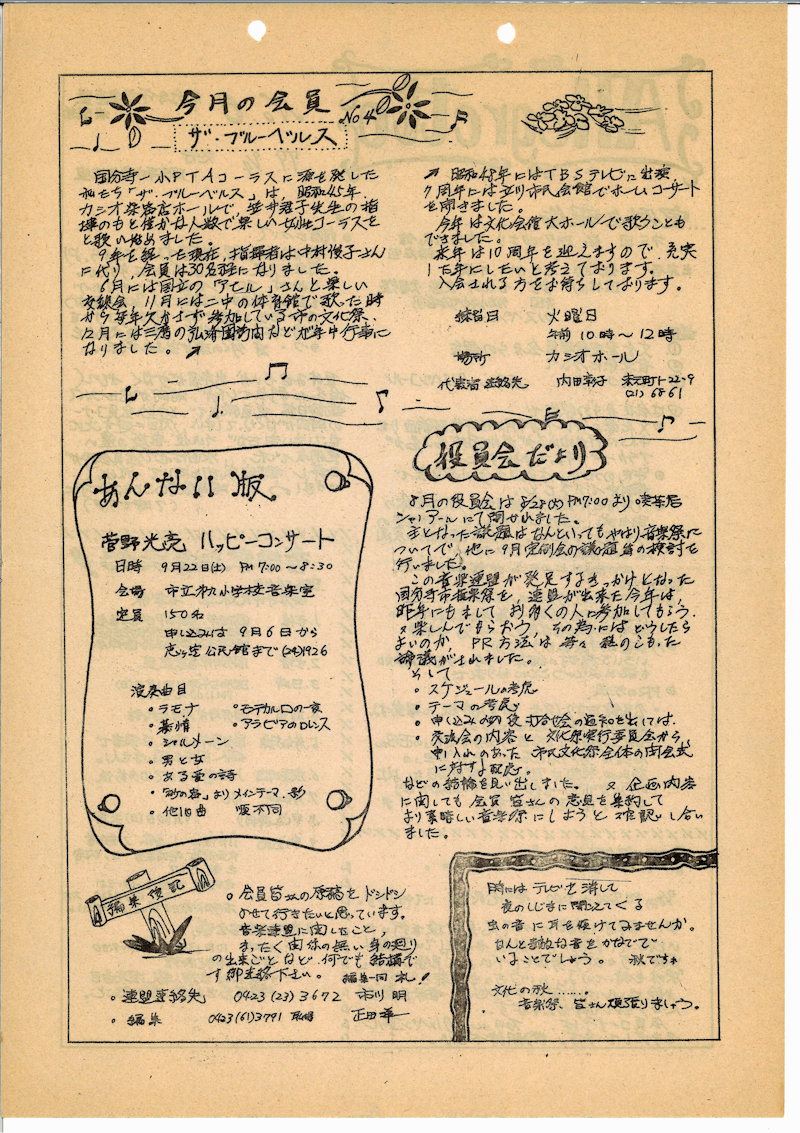 今月の会員 No 4
ザ・ブルーベルス
国分寺一小PTAコーラスに源を発した
私たち「ザ・ブルーベルス」は、昭和45年
カニオ祭店ホールで 先生の指
揮のもと僅かな人数で楽しい女声コーラスを
と歌い始めました。
9年を経った現在、指揮者は中村俊子さん
に代り、会員は30名程になりました。
6月には国立の「アヒル」さんと楽しい
交歓会、11月には二中の体育館で歌った時
から毎年欠かさず参加している市の文化祭、
12月には三鷹の弘済園訪問などが年中行事に
なりました。
昭和48年にはTBSテレビに出演
7周年には立川市民会館でホームコンサート
を開きました。
今年は文化会館大ホールで歌うことも
できました。
来年は10周年を迎えますので、充実
した年にしたいと考えております。
入会される方をお待ちしております。
練習日 火曜日
午前10時～12時
場所 カニオホール
代表者連絡先 内田幸子 東元町1-22-9
(21) 6861
あんない版
菅野光亮 ハッピーコンサート
日時 9月22日(土) PM 7:00～8:30
会場 市立第九小学校音楽室
定員 150名
申し込みは 9月6日から
恋ヶ窪公民館まで (24)1926
演奏曲目
・ラモナ ・モンテカルロの一夜
・慕情 ・アラビアのロレンス
・シャルメーン
・男と女
・ある愛の詩
・「砂の器」よりメインテーマ、影
・他10曲 順不同
役員会だより
8月の役員会は 8/28(火) PM7:00より 喫茶店
シャノアールにて開かれました。
主となった議題はなんといってもやはり音楽祭に
ついてで、他に9月定例会の議題等の検討を
行いました。
この音楽連盟が発足するきっかけとなった
国分寺市音楽祭を、連盟が出来た今年は、
昨年にもまして お多くの人に参加してもらう、
又楽しんでもらおう、その為にはどうしたら
よいのか、PR方法は等々 熱のこもった
論議がされました。
そして
・スケジュールの考慮
・テーマの考慮
・申し込みの 打合せ会の通知を出しては、
・交流会の内容と 文化祭実行委員会から
申し入れのあった 市民文化祭全体の開会式
に対する配慮。
などの結論を見い出しました。 又 企画内容
に関しても 会員皆さんの意見を集約して
より素晴しい音楽祭にしようと確認し合い
ました。
編集後記
○会員皆さんの原稿をドシドシ
のせて行きたいと思っています。
音楽連盟に関したこと、
まったく関係の無い身の廻り
の出来ごとなど 何でも結構で
す御連絡下さい。 編集一同 礼!
・連盟連絡先 0423 (23) 3672 市川 明
・編集 0423(61)3791 正田
時にはテレビを消して
夜のしじまに聞えてくる
虫の音に耳を傾けてみませんか。
なんと素敵な音をかなでて
いることでしょう。 秋ですね
文化の秋……。
音楽祭、皆さん頑張りましょう。